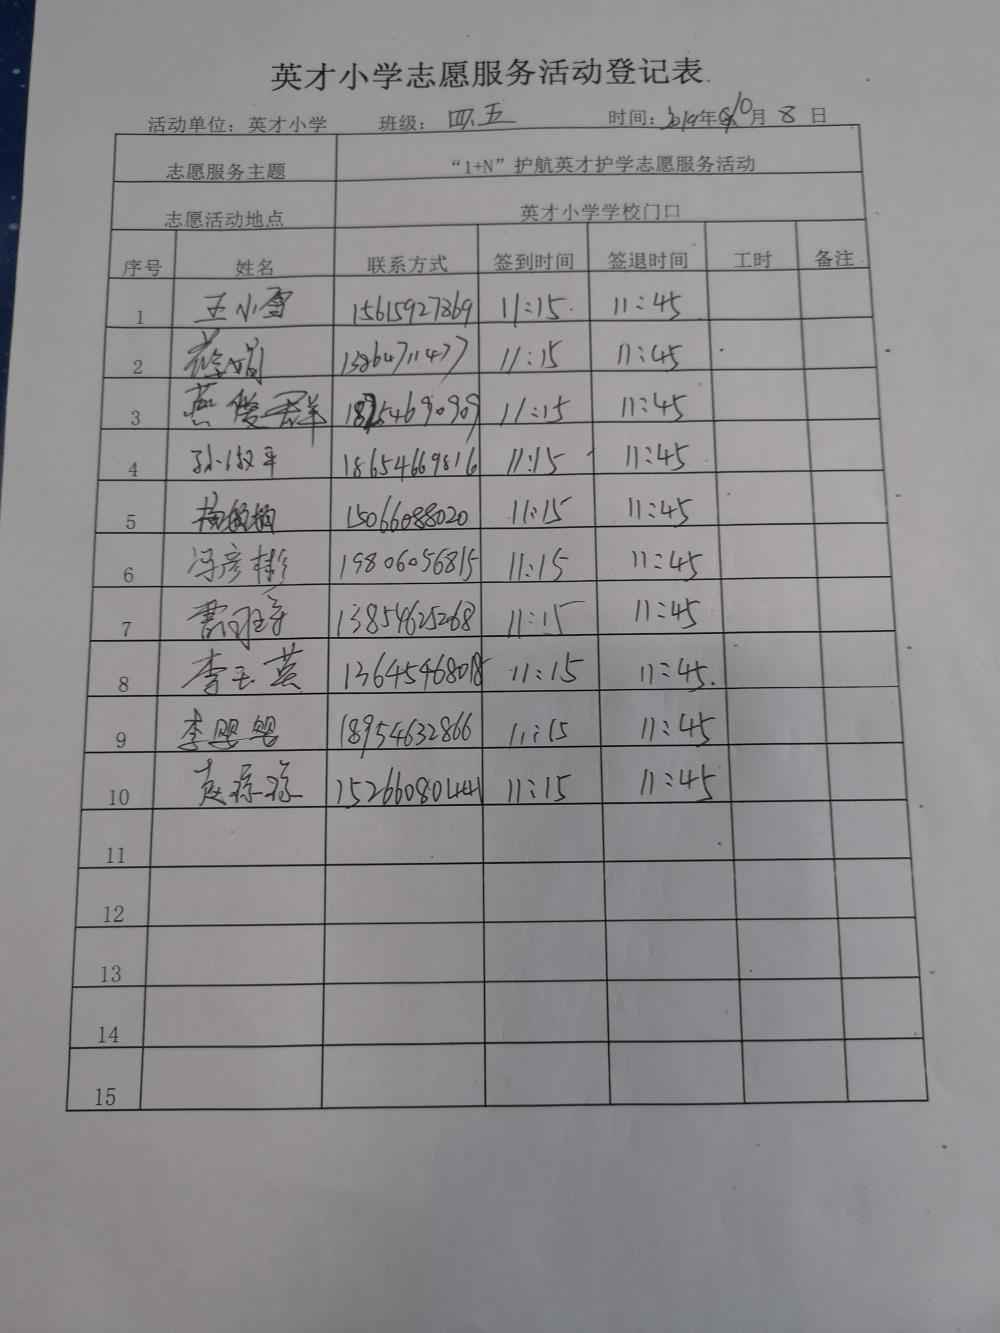 英才小学志愿服务活动登记表
活动单位：英才小学 班级：四.五 时间：2019年10月8日
志愿服务主题 “1+N”护航英才护学志愿服务活动
志愿活动地点 英才小学学校门口
序号 姓名 联系方式 签到时间 签退时间 工时 备注
1 王小雪 15615927869 11:15 11:45
2 13864711477 11:15 11:45
3 燕俊群 18954690909 11:15 11:45
4 孙淑平 18654669816 11:15 11:45
5 15066088020 11:15 11:45
6 冯彦彬 19806056815 11:15 11:45
7 13854625268 11:15 11:45
8 李玉英 13645468018 11:15 11:45
9 李婴婴 18954632866 11:15 11:45
10 赵琼琼 15266080441 11:15 11:45
11
12
13
14
15